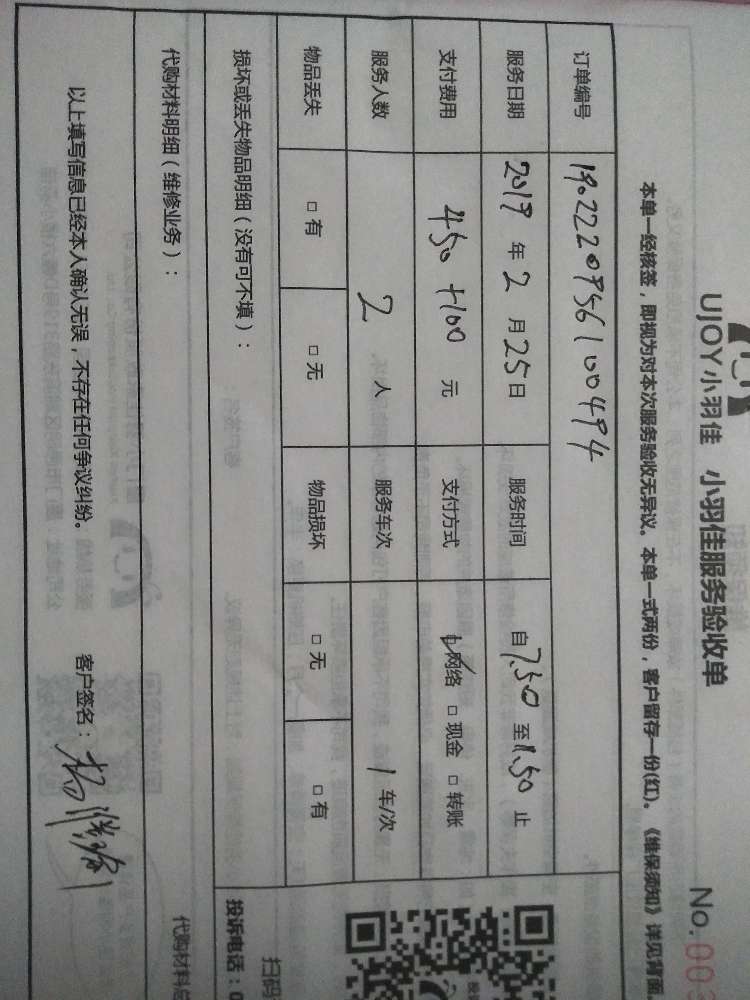 UJOY小羽佳 小羽佳服务验收单
No. 003
本单一经核签，即视为对本次服务验收无异议。本单一式两份，客户留存一份(红)。《维保须知》详见背面
订单编号 1902220956100494
服务日期 2019 年 2 月 25 日 服务时间 自 7.50 至 1.50 止
支付费用 450+100 元 支付方式 ☑网络 □现金 □转账
服务人数 2 人 服务车次 1 车/次
物品丢失 □有 □无 物品损坏 □无 □有
损坏或丢失物品明细（没有可不填）：
扫码
投诉电话：0
代购材料明细（维修业务）：
代购材料总
以上填写信息已经本人确认无误，不存在任何争议纠纷。 客户签名：